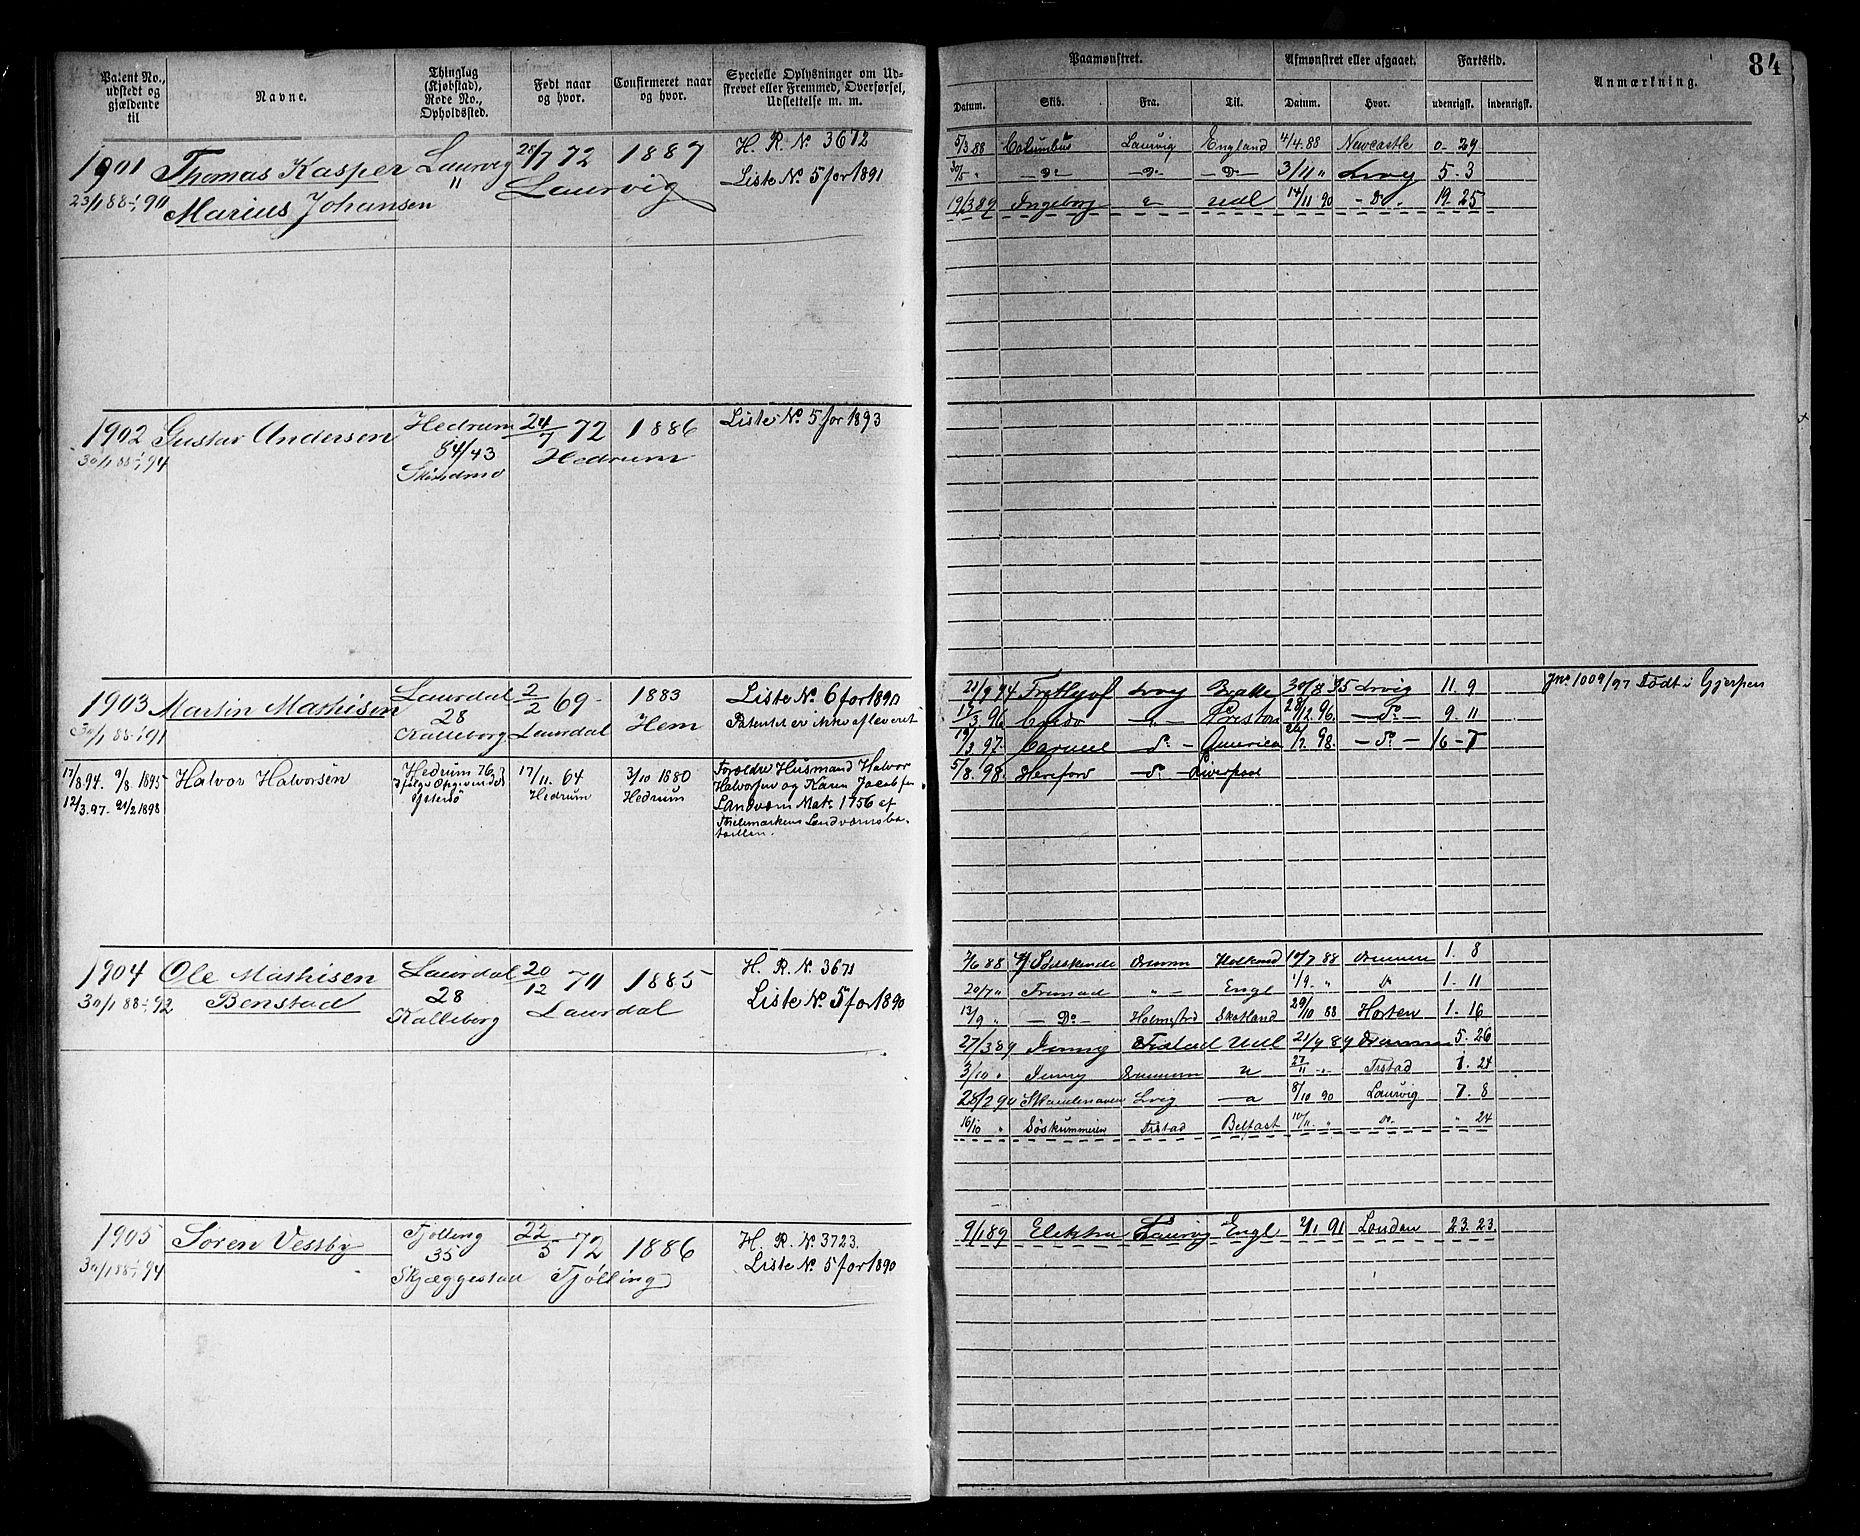 Patent No., udstedt og gjældende til
Navne.
Thinglag (Kjøbstad), Rode No., Opholdssted.
Født naar og hvor.
Confirmeret naar og hvor.
Specielle Oplysninger om Udskrevet eller Fremmed, Overførsel, Udslettelse m. m.
Paamønstret.
Afmønstret eller afgaaet.
Fartstid.
Anmærkning.
84
Datum.
Skib.
Fra.
Til.
Datum.
Hvor.
udenrigsk.
indenrigsk.
1901 Thomas Kasper Laurvig 28/7 72 1887 H. R. No 3672
11 Laurvig Liste No 5 for 1891
23/1 88 - 1/1 90 Marius Johansen
5/3 88 Columbus Laurvig England 4/4 88 Newcastle 0 - 29
30/5 " - Do - - Do - - Do - 3/11 " Lvig 5 - 3
19/3 89 Ingeborg " Udl 14/11 90 - Do - 19. 25
1902 Gustav Andersen Hedrum 24/7 72 1886 Liste No 5 for 1893
30/1 88 - 1/1 94 84/43 Hedrum
1903 Martin Mathisen Laurdal 2/2 69 - 1883 Liste No 6 for 1890
28 Hem Patentet er ikke afleveret
30/1 88 - 1/1 91 Kalleborg Laurdal
Frithjof Lvig 30/8 95 Lvig 11. 9 Jno 1009/97 Født i Gjerpen
17/3 96 28/12 96. - Do - 9. 11
17/8 94. 9/8 1895 Halvor Halvorsen Hedrum 76 17/11 64 3/10 1880 Forældre Husmand Halvor
ifølge Opgivende Hedrum Hedrum Halvorsen og Karen Jacobsen
12/3. 97. Landværn Mats 1756 af
Thelemarkens Landværnsba-
taillon.
- Do - America 98. - Do - 16 - 7
5/8. 98. Hereford - Do - Liverpool
1904 Ole Mathisen Laurdal 20/12 70 1885 H. R. No 3671
Benstad 28 Liste No 5 for 1890
30/1 88 - 1/1 92 Kalleborg Laurdal
88 1. 8
20/7 " " - Engl 1/9. " Do 1. 11
13/9 " - Do - Holmstrd Skotland 29/10 88 Horten 1. 16
27/3 89 Jenny Frstad Udl 21/9 89 5. 26
3/10 " Jenny 27/11 " Frstad 1. 24
28/2 90 Lvig 8/10 90 Laurvig 7. 8
16/10 " Söskummeren Frstad Belfast 10/11. " Do. " 24
1905 Søren Vessby Tjølling 22/5 72 1886 H. R. No 3723.
35 Liste No 5 for 1890
30/1 88 - 1/1 94 Skjæggestad Tjølling
9/1 89 Elektra Laurvig Engl 2/1 91 London 23. 23